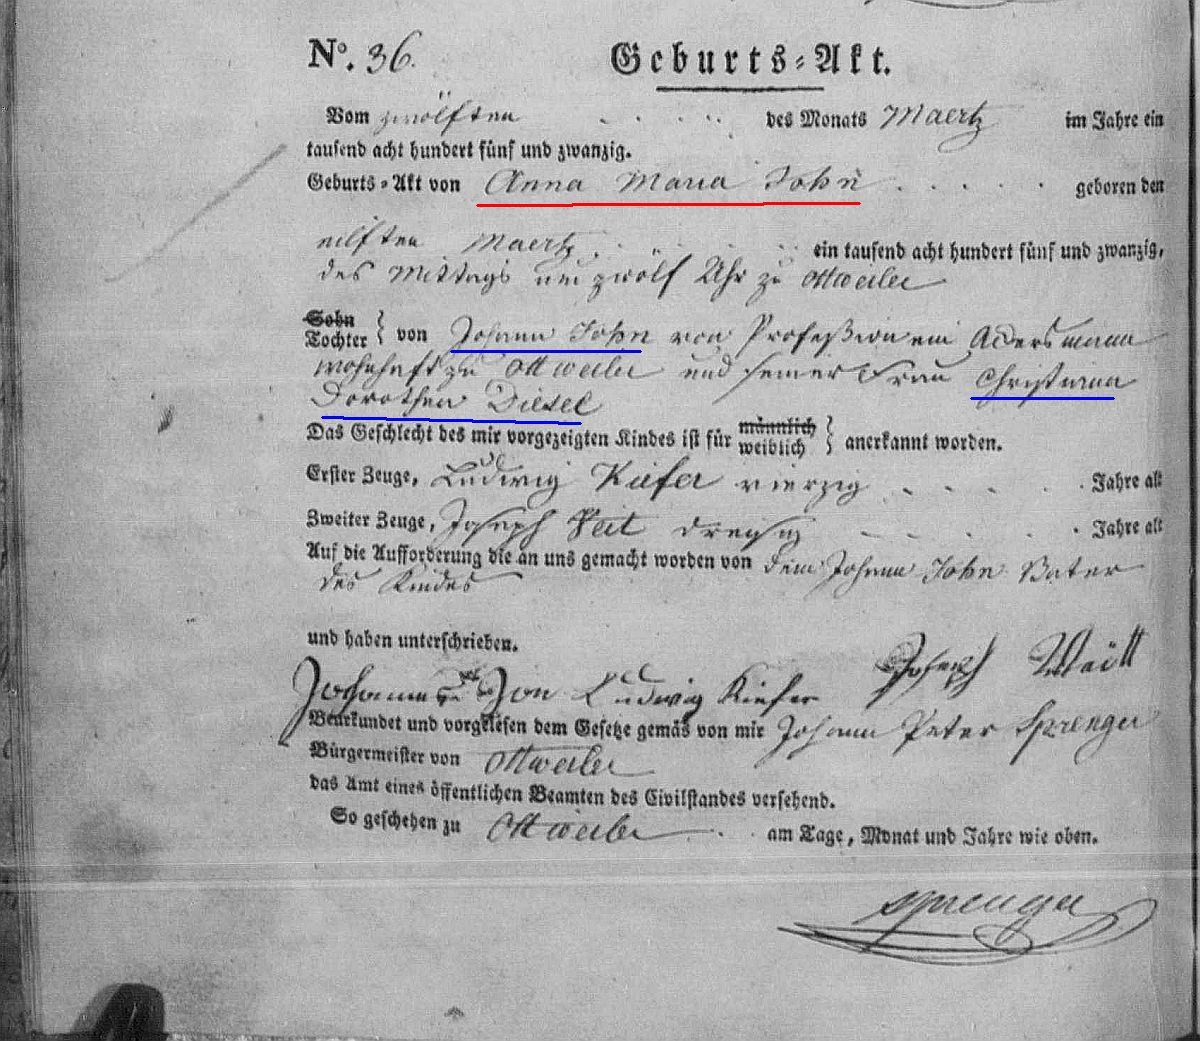 No. 36. Geburts-Akt.
Vom zwölften des Monats Maertz im Jahre ein
tausend acht hundert fünf und zwanzig.
Geburts-Akt von Anna Maria John geboren den
eilften Maertz ein tausend acht hundert fünf und zwanzig,
des Mittags um zwölf Uhr zu Ottweiler
Sohn
Tochter } von Johann John von Profeßion ein Ackersmann
wohnhaft zu Ottweiler und seiner Frau Christiana
Dorothea Diesel
Das Geschlecht des mir vorgezeigten Kindes ist für männlich weiblich } anerkannt worden.
Erster Zeuge, Ludwig Kiefer vierzig Jahre alt
Zweiter Zeuge, Joseph Veit dreysig Jahre alt
Auf die Aufforderung die an uns gemacht worden von dem Johann John Vater
des Kindes
und haben unterschrieben.
Johannes Jon Ludwig Kiefer Joseph
Beurkundet und vorgelesen dem Gesetze gemäs von mir Johann Peter Sprenger
Bürgermeister von Ottweiler
das Amt eines öffentlichen Beamten des Civilstandes versehend.
So geschehen zu Ottweiler am Tage, Monat und Jahre wie oben.
Sprenger